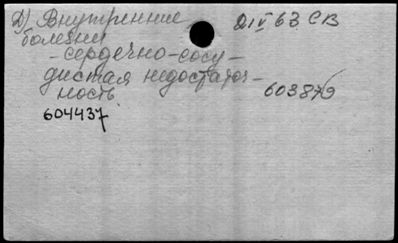 Д) Внутренние 21 V 63 СВ
болезни
- сердечно-сосу-
дистая недостаточ-
ность 603879
604437